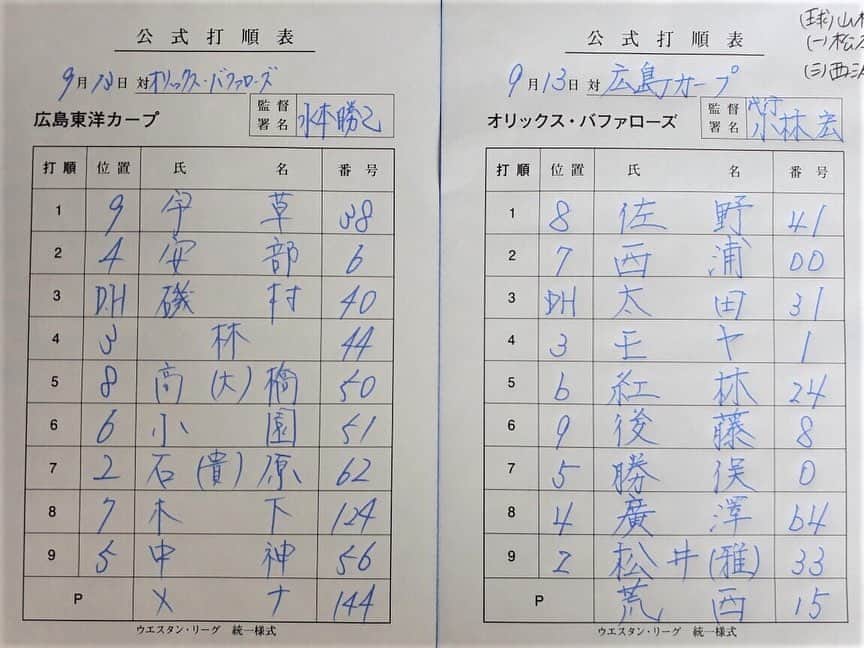 公式打順表
9月13日 対 オリックス・バファローズ
広島東洋カープ
監督署名 水本勝己
打順 位置 氏名 番号
1 9 宇草 38
2 4 安部 6
3 DH 磯村 40
4 3 林 44
5 8 高(大)橋 50
6 6 小園 51
7 2 石(貴)原 62
8 7 木下 124
9 5 中神 56
P メナ 144
ウエスタン・リーグ 統一様式
(球)山
(一)松
(三)西
公式打順表
9月13日 対 広島カープ
オリックス・バファローズ
監督署名 代行 小林宏
打順 位置 氏名 番号
1 8 佐野 41
2 7 西浦 00
3 DH 太田 31
4 3 モヤ 1
5 6 紅林 24
6 9 後藤 8
7 5 勝俣 0
8 4 廣澤 64
9 2 松井(雅) 33
P 荒西 15
ウエスタン・リーグ 統一様式